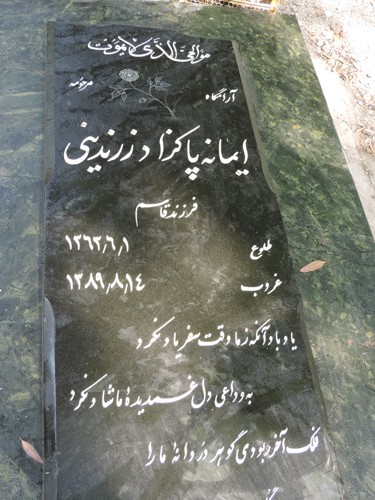 هو الحی الذی لا یموت
آرامگاه مرحومه
ایمانه پاکزاد زرندینی
فرزند قاسم
طلوع ۱۳۶۳/۶/۱
غروب ۱۳۸۹/۸/۱۴
یاد باد آنکه ز ما وقت سفر یاد نکرد
به وداعی دل غمدیدهٔ ما شاد نکرد
فلک آخر ربودی گوهر دردانهٔ ما را